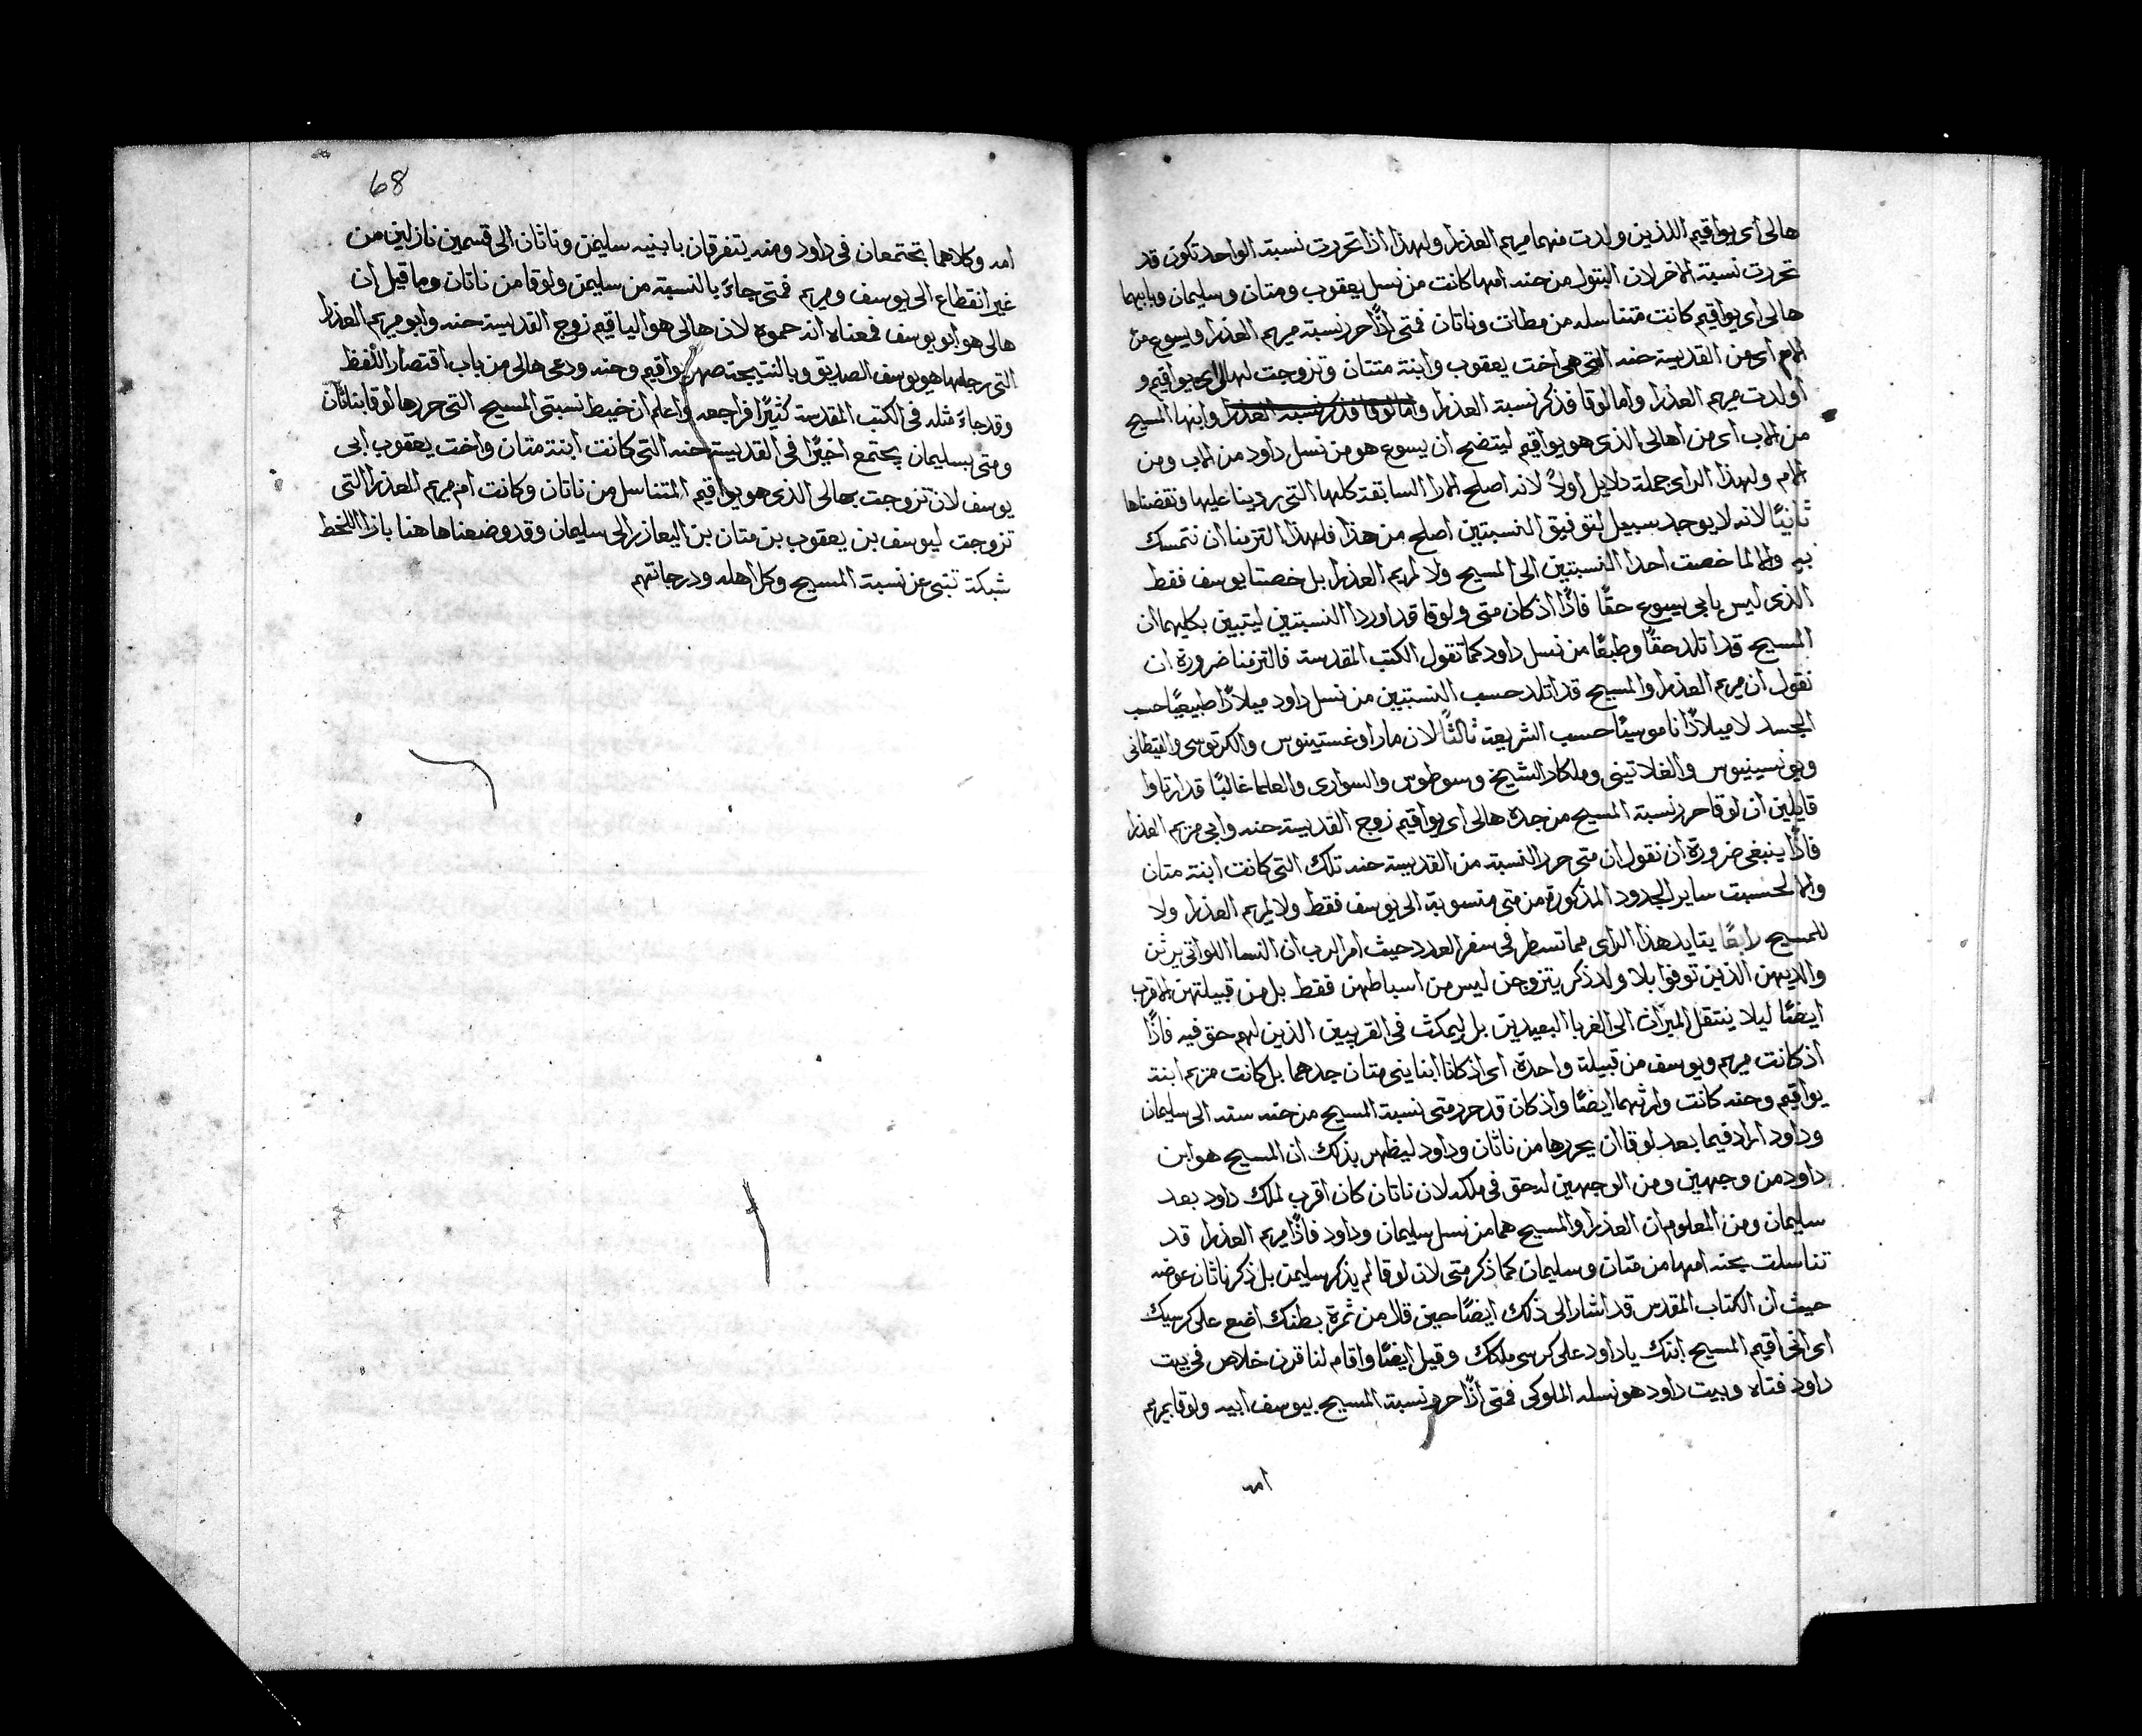 هالى اى يواقيم اللذين ولدت منهما مريم العذرا ولهذا اذا تحررت نسبة الواحد تكون قد
تحررت نسبة الاخر لان البتول من حنه امها كانت من نسل يعقوب ومتان وسليمان وبابيها
هالى اى يواقيم كانت متناسله من مطات وناتان فمتى اذًا حرر نسبة مريم العذرا ويسوع من
الام اى من القديسة حنه التى هى اخت يعقوب وابنة متتان وتزوجت لهالى اى يواقيم و
اولدت مريم العذرا واما لوقا فذكر نسبة العذرا واما لوقا فذكر نسبة العذرا وابنها المسيح
من الاب اى من اهالى الذى هو يواقيم ليتضح ان يسوع هو من نسل داود من الاب ومن
الام ولهذا الراى جملة دلايل اولاً لانه اصلح الارا السابقة كلها التى ردينا عليها ونقضناها
ثانيًا لانه لا يوجد سبيل لتوفيق النسبتين اصلح من هذا فلهذا التزمنا ان نتمسك
به والا لما خصت احدا النسبتين الى المسيح ولا لمريم العذرا بل خصتا يوسف فقط
الذى ليس بابى يسوع حقًا فاذًا اذ كان متى ولوقا قد اوردا النسبتين ليتبين بكليهما ان
المسيح قد اتلد حقًا وطبعًا من نسل داود كما تقول الكتب المقدسة فالتزمنا ضرورة ان
نقول ان مريم العذرا والمسيح قد اتلد حسب النسبتين من نسل داود ميلادًا طبيعيًا حسب
الجسد لا ميلادًا ناموسيًا حسب الشريعة ثالثًا لان مار اوغستينوس والكرتوسى والقيطانى
ويونسينيوس والغلاتينى وملكار الشيخ وسوطوس والسوارى والعلما غالبًا قد ارتاوا
قايلين ان لوقا حرر نسبة المسيح من جده هالى اى يواقيم زوج القديسة حنه وابى مريم العذرا
فاذًا ينبغى ضرورة ان نقول ان متى حرر النسبة من القديسة حنه تلك التى كانت ابنة متان
والا لحسبت ساير الجدود المذكورة من متى منسوبة الى يوسف فقط ولا لمريم العذرا ولا
للمسيح رابعًا يتايد هذا الراى مما تسطر فى سفر العدد حيث امر الرب ان النسا اللواتى يرثن
والديهن الذين توفوا بلا ولد ذكر يتزوجن ليس من اسباطهن فقط بل من قبيلتهن الاقرب
ايضًا ليلا ينتقل الميراث الى الغربا البعيدين بل ليمكث فى القريبين الذين لهم حق فيه فاذًا
اذ كانت مريم ويوسف من قبيلة واحدة اى اذ كانا ابنا بنى متان جدهما بل كانت مريم ابنة
يواقيم وحنه كانت وارثهما ايضًا واذ كان قد حرر متى نسبة المسيح من حنه سته الى سليمان
وداود اراد فيما بعد لوقا ان يحررها من ناثان وداود ليظهر بذلك ان المسيح هو ابن
داود من وجهين ومن الوجهين له حق فى ملكه لان ناتان كان اقرب لملك داود بعد
سليمان ومن المعلوم ان العذرا والمسيح هما من نسل سليمان وداود فاذًا مريم العذرا قد
تناسلت بحنه امها من متان وسليمان كما ذكر متى لان لوقا لم يذكر سليمن بل ذكر ناثان عوضه
حيث ان الكتاب المقدس قد اشار الى ذلك ايضًا حين قال من ثمرة بطنك اضع على كرسيك
اى انى اقيم المسيح ابنك يا داود على كرسى ملكك وقيل ايضًا واقام لنا قرن خلاص فى بيت
داود فتاه وبيت داود هو نسله الملوكى فمتى اذًا حرر نسبة المسيح بيوسف ابيه ولوقا بمريم
امه
68
امه وكلاهما تجتمعان فى داود ومنه يتفرقان بابنيه سليمن وناثان الى قسمين نازلين من
غير انقطاع الى يوسف ومريم فمتى جاءَ بالنسبة من سليمن ولوقا من ناتان وما قيل ان
هالى هو ابو يوسف فمعناه انه حموه لان هالى هو الياقيم زوج القديسة حنه وابو مريم العذرا
التى رجلها هو يوسف الصديق وبالنتيجة صهر يواقيم وحنه ودعى هالى من باب اقتصار اللفظ
وقد جاءَ مثله فى الكتب المقدسة كثيرًا فراجعه واعلم ان خيط نسبتى المسيح التى حررها لوقا بناثان
ومتى بسليمان يجتمع اخيرًا فى القديسة حنه التى كانت ابنة متان واخت يعقوب ابى
يوسف لان تزوجت بهالى الذى هو يواقيم المتناسل من ناتان وكانت ام مريم العذرا التى
تزوجت ليوسف بن يعقوب بن متان بن اليعازر الى سليمان وقد وضعناها هنا بازا اللخط
شبكة تنبى عن نسبة المسيح وكل اهله ودرجاتهم